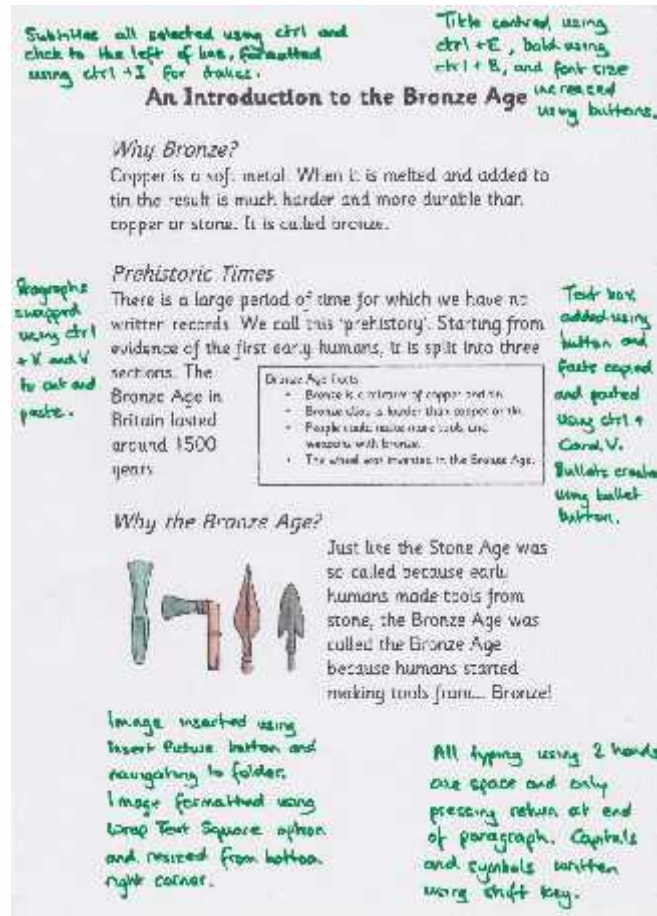 Subtitles all selected using ctrl and
click to the left of line, formatted
using ctrl + I for italics.
Title centred, using
ctrl + E, bold using
ctrl + B, and font size
increased
using buttons.
An Introduction to the Bronze Age
Why Bronze?
Copper is a soft metal. When it is melted and added to
tin the result is much harder and more durable than
copper or stone. It is called bronze.
Paragraphs
swapped
using ctrl
+ X and V
to cut and
paste.
Prehistoric Times
There is a large period of time for which we have no
written records. We call this 'prehistory'. Starting from
evidence of the first early humans, it is split into three
sections. The
Bronze Age in
Britain lasted
around 1500
years
Bronze Age Facts
• Bronze is a mixture of copper and tin.
• Bronze alloy is harder than copper or tin.
• People could make more tools and
weapons with bronze.
• The wheel was invented in the Bronze Age.
Text box
added using
button and
facts copied
and pasted
using ctrl +
C and V.
Bullets created
using bullet
button.
Why the Bronze Age?
Just like the Stone Age was
so called because early
humans made tools from
stone, the Bronze Age was
called the Bronze Age
because humans started
making tools from... Bronze!
Image inserted using
Insert Picture button and
navigating to folder.
Image formatted using
Wrap Text Square option
and resized from bottom
right corner.
All typing using 2 hands
one space and only
pressing return at end
of paragraph. Capitals
and symbols written
using shift key.